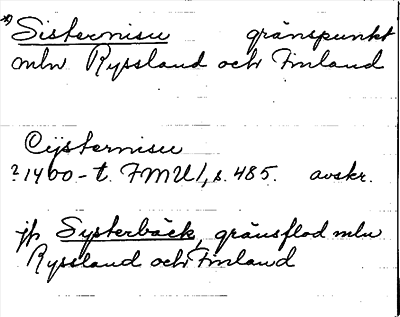 *) Sisternisu gränspunkt
mln Ryssland och Finland
Cÿsternisu
?1400-t. FMU1, s. 485. avskr.
jfr Systerbäck, gränsflod mln
Ryssland och Finland